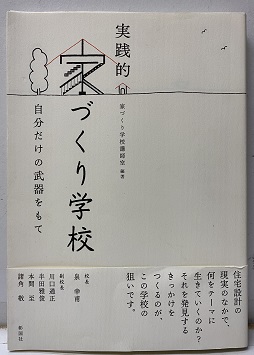 実践的
家づくり学校
自分だけの武器をもて
家づくり学校講師室 編著
住宅設計の
現実のなかで、
何をテーマに
生きていくのか?
それを発見する
きっかけを
つくるのが、
この学校の
狙いです。
校長
泉 幸甫
副校長
川口通正
半田雅俊
本間 至
諸角 敬
彰国社